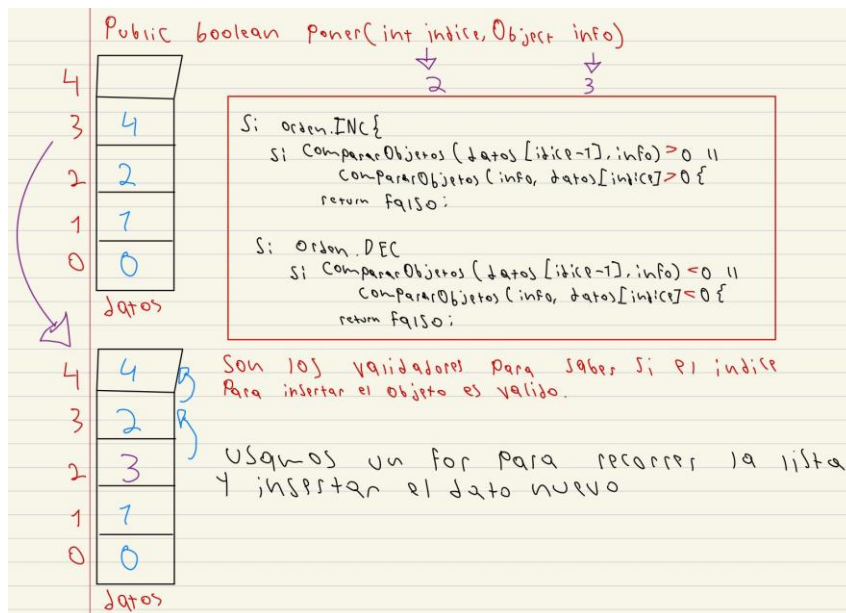 Public boolean poner(int indice, Object info)
2 3
4
3 4
2 2
1 1
0 0
datos
Si orden.INC{
si CompararObjetos (datos [idice-1], info) > 0 ||
CompararObjetos (info, datos[indice] > 0 {
return falso;
Si orden.DEC
si CompararObjetos (datos [idice-1], info) < 0 ||
CompararObjetos (info, datos[indice] < 0 {
return falso;
4 4
3 2
2 3
1 1
0 0
datos
Son los validadores para saber si el indice
Para insertar el objeto es valido.
Usamos un for para recorrer la lista
y insertar el dato nuevo